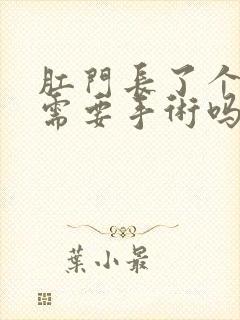 肛門長了个
需要手術吗
葉小最